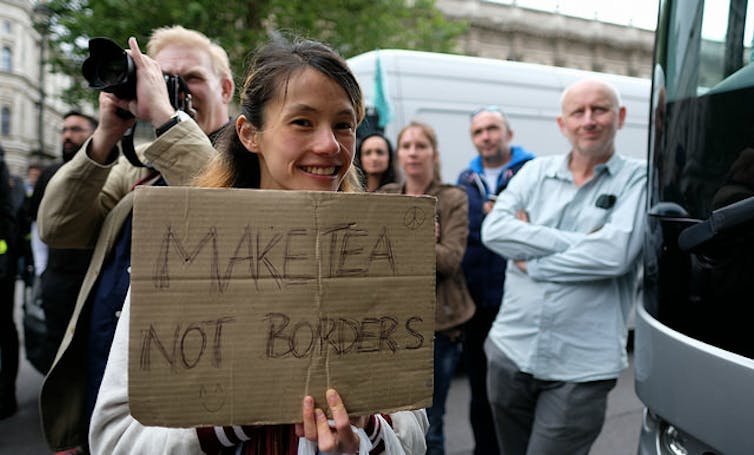 MAKE TEA
NOT BORDERS